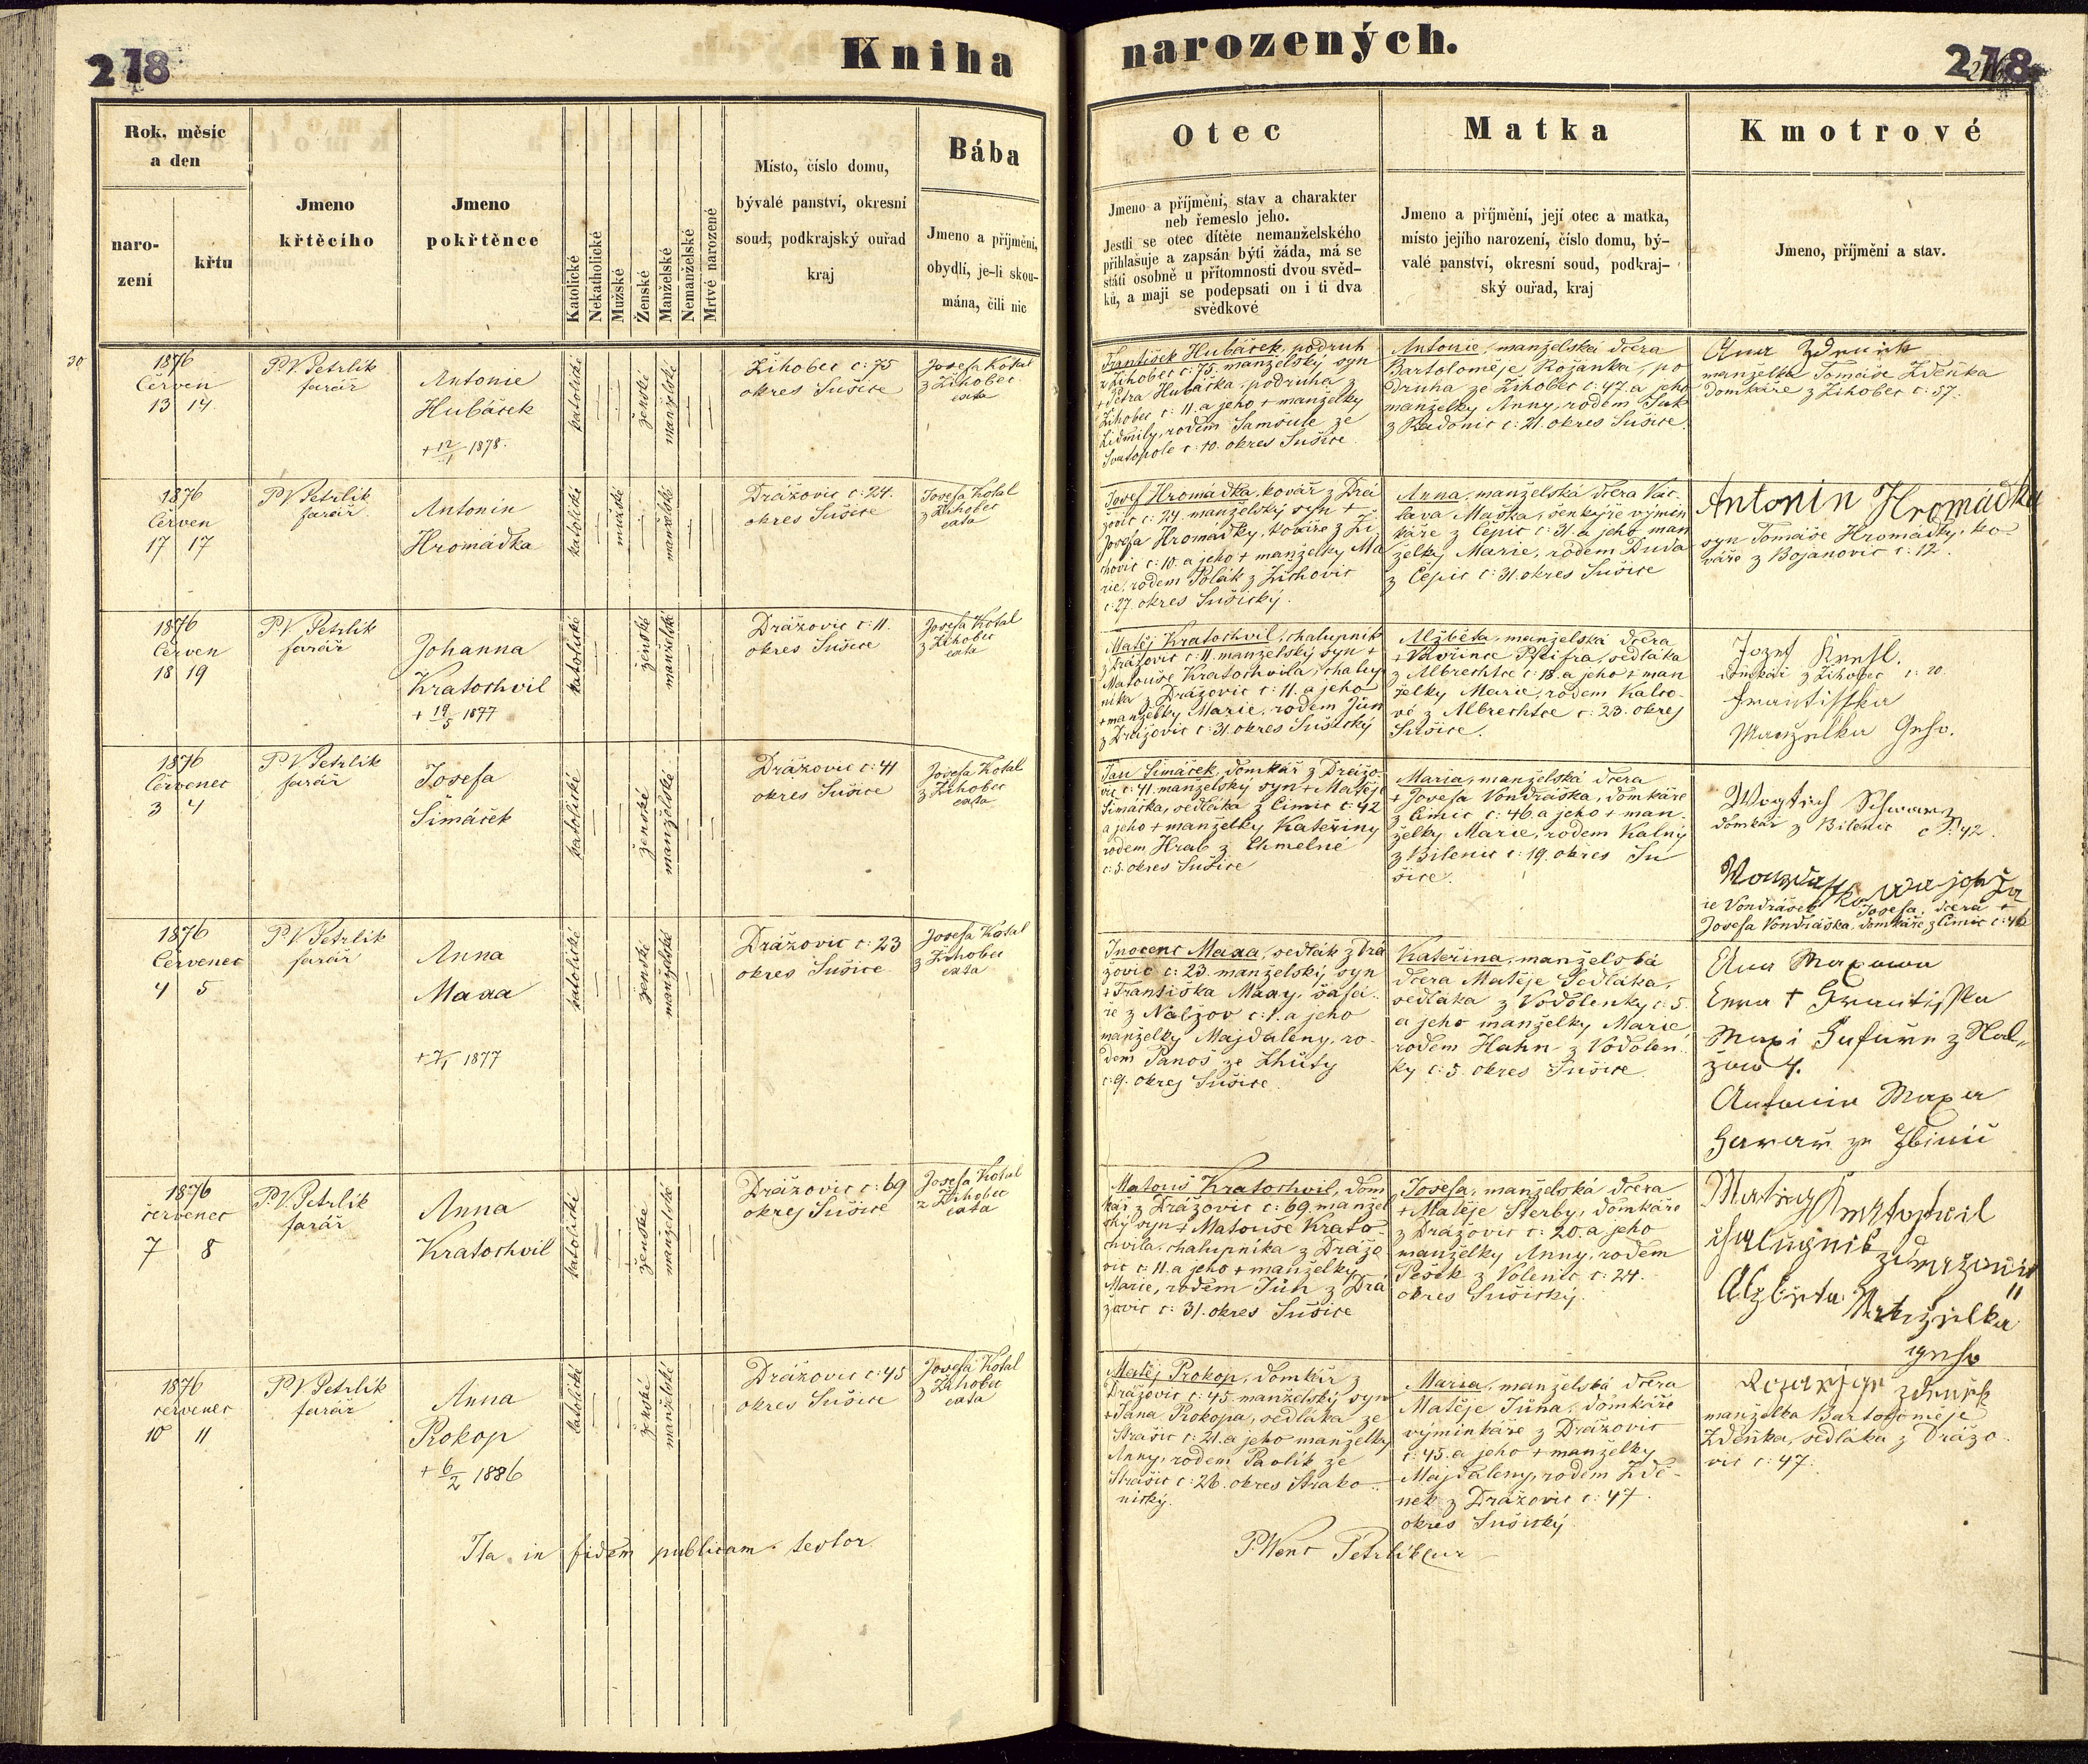 218
Kniha
narozených.
218
Rok, měsíc
a den
naro-
zení
křtu
Jmeno
křtěcího
Jmeno
pokřtěnce
Katolické
Nekatholické
Mužské
Ženské
Manželské
Nemanželské
Mrtvě narozené
Místo, číslo domu,
bývalé panství, okresní
soud, podkrajský ouřad
kraj
Bába
Jmeno a příjmění,
obydlí, je-li skou-
mána, čili nic
Otec
Jmeno a příjmění, stav a charakter
neb řemeslo jeho.
Jestli se otec dítěte nemanželského
přihlašuje a zapsán býti žáda, má se
státi osobně u přítomnosti dvou svěd-
ků, a mají se podepsati on i ti dva
svědkové
Matka
Jmeno a příjmění, její otec a matka,
místo jejího narození, číslo domu, bý-
valé panství, okresní soud, podkraj-
ský ouřad, kraj
Kmotrové
Jmeno, příjmění a stav.
30
1876
Červen
13 14
P.V. Petrlík
farář
Antonie
Hubáček
+ 12/1 1878.
katolické
ženské
manželské
Žihobec č: 75
okres Sušice
Josefa Kotal
z Žihobec
exta
František Hubáček, podruh
z Žihobec č: 75. manželský syn
+ Petra Hubáčka podruha z
Žihobec č: 11. a jeho + manželky
Lidmily, rodem Samšule ze
Svatopole č: 10. okres Sušice
Antonie, manželská dcera
Bartoloměje Rožanka, po
druha ze Žihobec č: 47. a jeho
manželky Anny, rodem Suk
z Kadonic č: 21. okres Sušice.
Ana Zdeněk
manželka Tomáše Zděnka
domkáře z Žihobec č: 57.
1876
Červen
17 17
P.V. Petrlík
farář
Antonín
Hromádka
katolické
mužské
manželské
Drážovic č: 24.
okres Sušice
Josefa Kotal
z Žihobec
exta
Josef Hromádka, kovář z Drá
žovic č: 24 manželský syn +
Josefa Hromádky, kováře z Ži
chovic č: 10. a jeho + manželky Ma
rie, rodem Polák z Žichovic
č: 27. okres Sušický.
Anna, manželská dcera Vác-
lava Maška, šenkýře výmin
káře z Čepic č: 31. a jeho man
želky Marie, rodem Duda
z Čepic č: 31. okres Sušice
Antonin Hromádka
syn Tomáše Hromádky, ko-
váře z Bojanovic č: 12.
1876
Červen
18 19
P.V. Petrlík
farář
Johanna
Kratochvil
+ 19/5 1877
katolické
ženské
manželské
Drážovic č: 11.
okres Sušice
Josefa Kotal
z Žihobec
exta
Matěj Kratochvil, chalupník
z Drážovic č: 11. manželský syn +
Matouše Kratochvila, chalup
níka z Drážovic č: 11. a jeho
+ manželky Marie, rodem Jůn
z Drážovic č: 31. okres Sušický
Alžběta, manželská dcera
+ Vavřince Pfeifra, sedláka
z Albrechtce č: 18. a jeho + man
želky Marie, rodem Kalco-
vé z Albrechtce č: 23. okres
Sušice.
Jozef
domkář z Žihobec č: 20.
Frantisska
Manzelka Geho.
1876
Červenec
3 4
P.V. Petrlík
farář
Josefa
Šimáček
katolické
ženské
manželské
Drážovic č: 41
okres Sušice
Josefa Kotal
z Žihobec
exta
Jan Šimáček, domkář z Drážo-
vic č: 41. manželský syn + Matěje
Šimáčka, sedláka z Čimic č: 42
a jeho + manželky Kateřiny
rodem Hrab z Chmelné
č: 5. okres Sušice
Maria, manželská dcera
+ Josefa Vondráška, domkáře
z Čimic č: 46. a jeho + man-
želky Marie, rodem Kalný
z Bilenic č: 19. okres Su
šice.
Wogtich Schwarz
domkář z Bilenic č: 42.
Josefa, dcera +
Josefa Vondráška, domkáře z Čimic č: 46
1876
Červenec
4 5
P.V. Petrlík
farář
Anna
Maxa
+ 7/1 1877
katolické
ženské
manželské
Drážovic č: 23
okres Sušice
Josefa Kotal
z Žihobec
exta
Inocenc Maxa, sedlák z Drá
žovic č: 23. manželský syn
+ Františka Maxy, šafá-
ře z Nalžov č: 1. a jeho
manželky Majdaleny, ro-
dem Panoš ze Lhůty
č: 9. okres Sušice.
Kateřina, manželská
dcera Matěje Sedláka,
sedláka z Vodolenky č: 5.
a jeho manželky Marie
rodem Hahn z Vodolen-
ky č: 5. okres Sušice.
Ana Maxowa
+ Frantisska
Maxi
Antonin Maxa
1876
červenec
7 8
P.V. Petrlík
farář
Anna
Kratochvil
katolické
ženské
manželské
Drážovic č: 69
okres Sušice
Josefa Kotal
z Žihobec
exta
Matouš Kratochvil, dom
kář z Drážovic č: 69. manžel
ský syn + Matouše Krato-
chvila, chalupníka z Drážo
vic č: 11. a jeho + manželky
Marie, rodem Jůn z Drá
žovic č: 31. okres Sušice
Josefa, manželská dcera
+ Matěje Štěrby, domkáře
z Drážovic č: 20. a jeho
manželky Anny, rodem
Pešek z Volenic č: 24.
okres Sušický.
Kratochwil
chalupnik
Alzbieta Manželka
geho
1876
červenec
10 11
P.V. Petrlík
farář
Anna
Prokop
+ 6/2 1886
katolické
ženské
manželské
Drážovic č: 45
okres Sušice
Josefa Kotal
z Žihobec
exta
Matěj Prokop, domkář z
Drážovic č: 45. manželský syn
+ Jana Prokopa, sedláka ze
Strašic č: 21. a jeho manželky
Anny, rodem Pavlík ze
Strašic č: 26. okres Strako-
nický.
Maria, manželská dcera
Matěje Jůna, domkáře
výminkáře z Drážovic
č: 45. a jeho + manželky
Majdaleny, rodem Zdě-
nek z Drážovic č: 47.
okres Sušický.
Zdeněk
manželka Bartoloměje
Zděnka, sedláka z Drážo-
vic č: 47.
Ita in fidem publicam testor
P. Wenc Petrlik